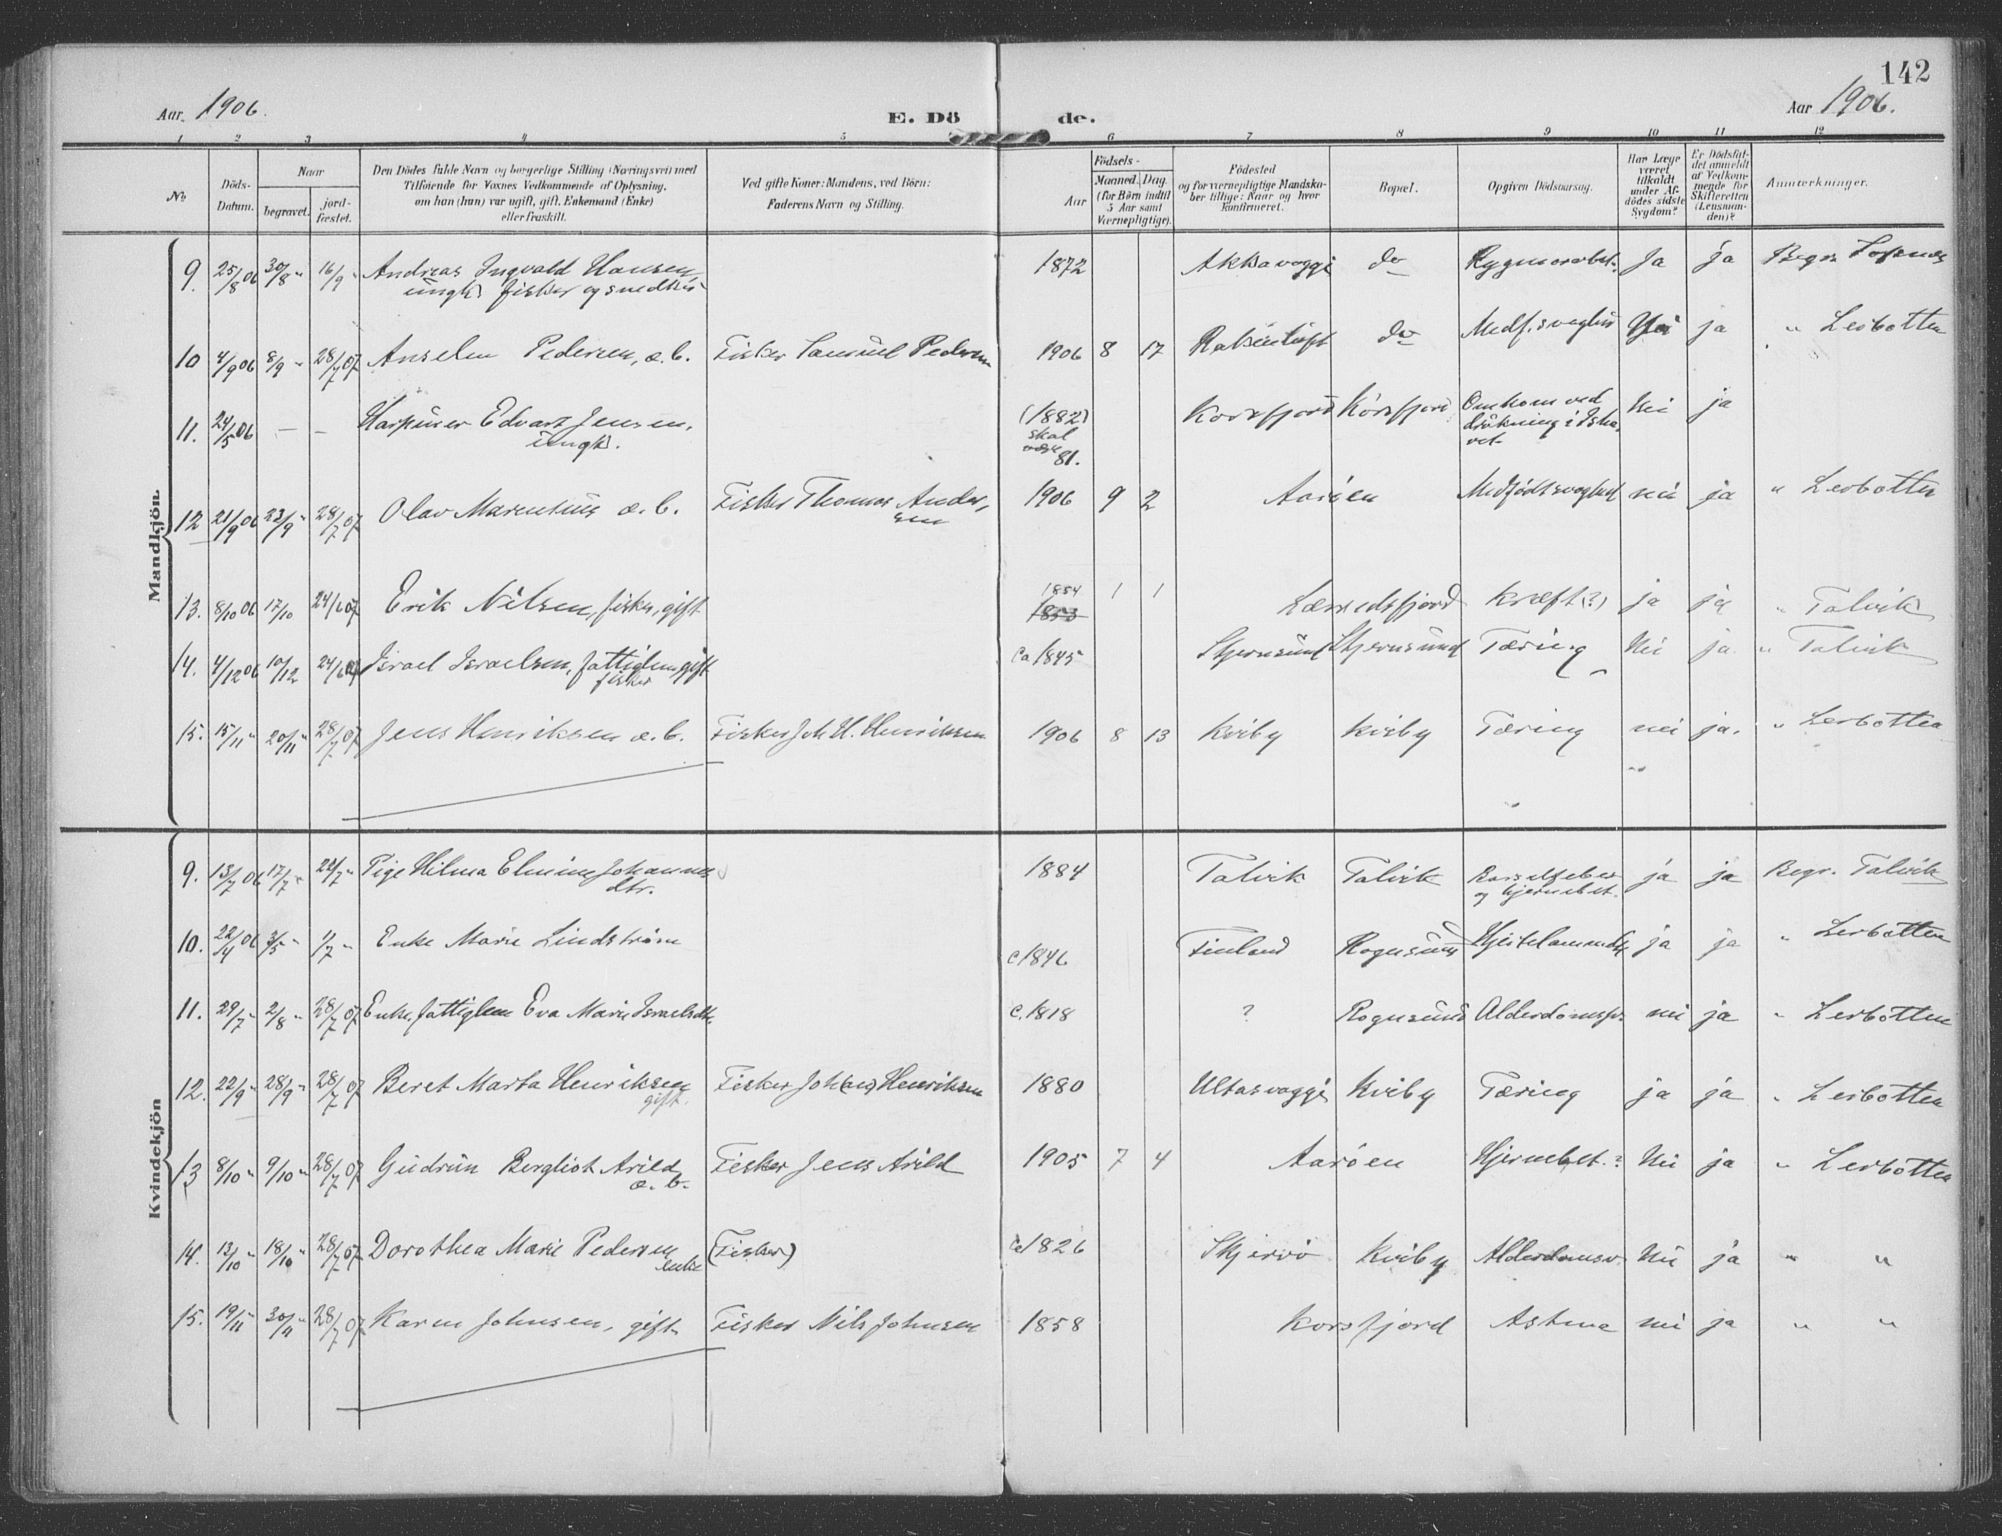 142
Aar 1906.
E. Döde.
Aar 1906.
1 2 3 4 5 6 7 8 9 10 11 12
No
Döds-Datum.
Naar
begravet.
jord-fæstet.
Den Dödes fulde Navn og borgerlige Stilling (Næringsvei) med
Tilföiende for Voxnes Vedkommende af Oplysning,
om han (hun) var ugift, gift, Enkemand (Enke)
eller fraskilt.
Ved gifte Koner: Mandens, ved Börn:
Faderens Navn og Stilling.
Födsels-
Aar
Maaned. Dag.
(for Börn indtil
5 Aar samt
Værnepligtige).
Födested
og for værnepligtige Mandska-
ber tillige: Naar og hvor
konfirmeret.
Bopæl.
Opgiven Dödsaarsag.
Har Læge
været
tilkaldt
under Af-
dödes sidste
Sygdom?
Er Dödsfal-
det anmeldt
af Vedkom-
mende for
Skifteretten
(Lensman-
den)?
Anmærkninger.
Mandkjön.
9. 25/8 06 30/8 " 16/9 " Andreas Ingvald Hansen 1872 Akkavaggi do Ja ja Begr.
ungk. fisker og snedker
10 4/9 06 8/9 " 28/7 07 Anselm Pedersen, æ.b. Fisker Samuel Pedersen 1906 8 17 do Medf. svaghed Nei ja " Lerbotten
11. 24/5 06 — — Harpuner Edvart Jensen, (1882) Korsfjord Korsfjord Omkom ved Nei ja
ungk. skal være 81. drukning i Isha-
vet
12 21/9 06 23/9 " 28/7 07 Olav Marentius æ.b. Fisker Thomas Ander- 1906 9 2 Aaröen Medfödt svaghed nei ja " Lerbotten
sen
13. 8/10 06 17/10 24/6 07 Erik Nilsen, fisker, gift 1854 1 1 Kræft (?) ja ja " Talvik
1853
14. 4/12 06 10/12 24/6 07 Israel Israelsen, fattiglem, gift ca 1845 Stjernsund Stjernsund Tæring Nei ja " Talvik
fisker
15. 15/11 " 20/11 " 28/7 07 Jens Henriksen æ.b. Fisker Joh. H. Henriksen 1906 8 13 Kviby Kviby Tæring nei ja. " Lerbotten
Kvindekjön
9. 13/7 06 17/7 " 22/7 " Pige Hilma Elmine Johannes 1884 Talvik Talvik ja ja Begr. Talvik
dtr. og hjernebet.
10. 22/4 06 3/5 " 1/7 " Enke Marie Lindström c. 1846 Finland Rognsund ja ja " Lerbotten
11. 29/7 " 2/8 " 28/7 07 Enke, fattiglem Eva Marie Israelsdtr. c. 1818 ? Rognsund nei ja " Lerbotten
12. 22/9 " 28/9 " 28/7 07 Beret Marta Henriksen Fisker Johan Henriksen 1880 Ultasvaggi Kviby Tæring ja ja " Lerbotten
gift.
13 8/10 " 9/10 " 28/7 07 Gudrun Bergliot Arild Fisker Jens Arild 1905 7 4 Aaröen Hjernebet.? Nei ja " Lerbotten
æ.b.
14. 13/10 " 18/10 " 28/7 07 Dorothea Marie Pedersen (Fisker) ca 1826 Skjervö Kviby Alderdomsv. Nei ja " "
enke
15. 19/11 " 30/11 " 28/7 07 Karen Johnsen, gift Fisker Nils Johnsen 1858 Korsfjord Astma nei ja " "